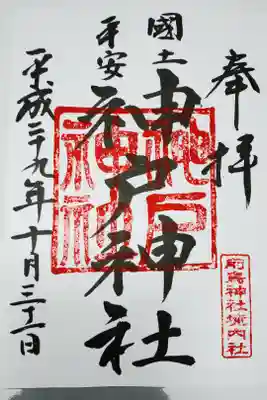 奉拝
國土
平安
神戸神社
前鳥神社境内社
平成二十九年十月三十一日